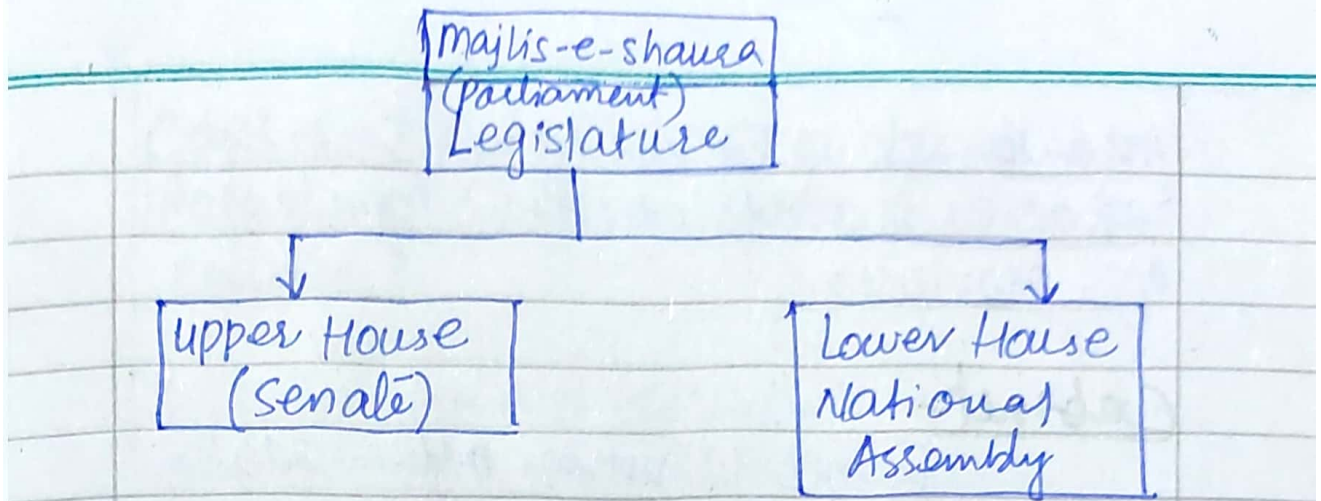 Majlis-e-shaura
(parliament)
Legislature
upper House
(senate)
Lower House
National
Assembly